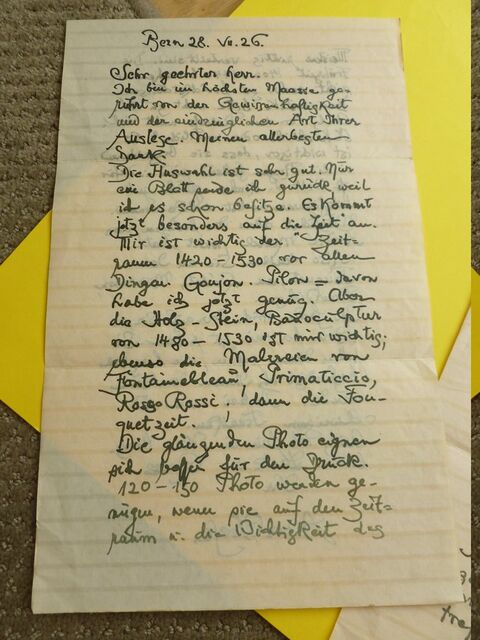 Bern 28. VI. 26.
Sehr geehrter Herr.
Ich bin im höchsten Maasse ge-
rührt von der Gewissenhaftigkeit
und der Art Ihrer
Auslese. Meinen allerbesten
Dank.
Die Auswahl ist sehr gut. Nur
ein Blatt sende ich zurück weil
ich es schon besitze. Es kommt
jetzt besonders auf die "Zeit" an.
Mir ist wichtig der "Zeit-
raum 1420-1530 vor allen
Dingen. Goujon. Pilon = davon
habe ich jetzt genug. Aber
die Holz-Stein,
von 1480-1530 ist mir wichtig;
ebenso die Malereien von
Fontainebleau, Primaticcio,
Rosso Rossi! dann die Fou-
quetzeit.
Die glänzenden Photo eignen
sich besser für den Druck.
120-150 Photo werden ge-
nügen, wenn sie auf den Zeit=
raum u. die Wichtigkeit des